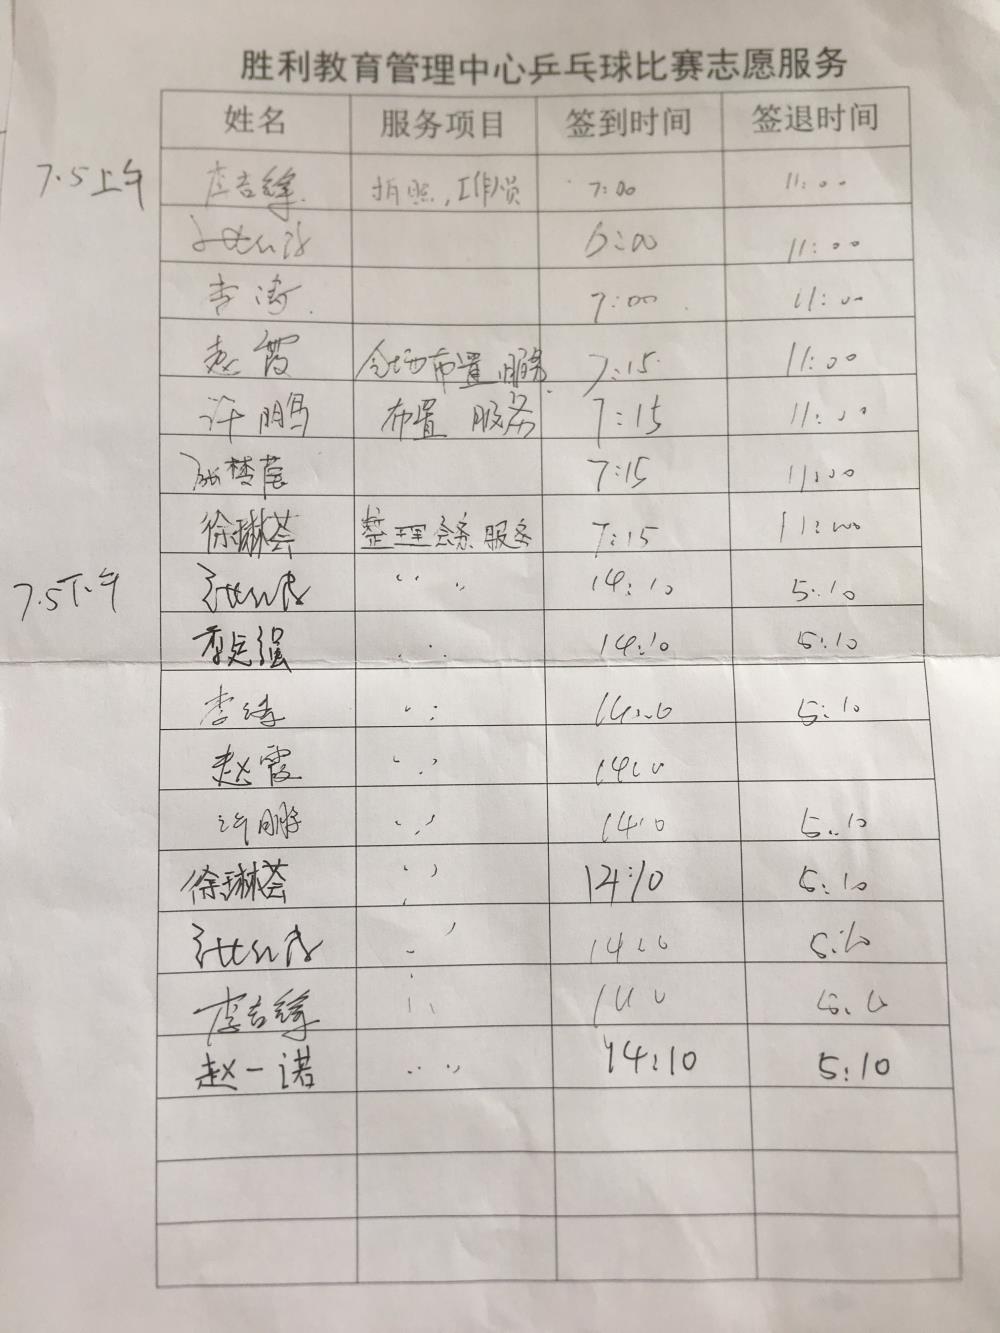 胜利教育管理中心乒乓球比赛志愿服务
姓名 服务项目 签到时间 签退时间
7.5上午 李吉锋 拍照，工作人员 7:00 11:00
6:00 11:00
李涛 7:00 11:00
赵霞 会场布置 服务 7:15 11:00
许鹏 布置 服务 7:15 11:00
张梦莹 7:15 11:00
徐琳荟 整理会务 服务 7:15 11:00
7.5下午 〃 14:10 5:10
李定强 〃 14:10 5:10
李涛 〃 14:10 5:10
赵霞 〃 14:10
许鹏 〃 14:10 5:10
徐琳荟 〃 14:10 5:10
〃 14:10 5:10
李吉锋 〃 14:10 5:10
赵一诺 〃 14:10 5:10